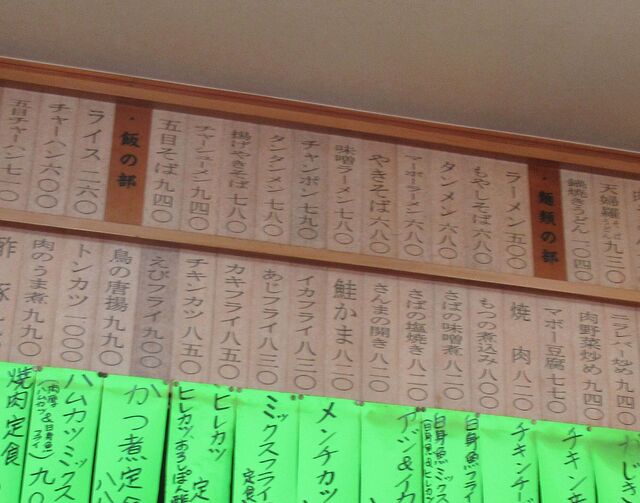 天婦羅
鍋焼きうどん 一〇四〇
・麺類の部
ラーメン 五〇〇
もやしそば 六八〇
タンメン 六八〇
マーボーラーメン 六八〇
やきそば 六八〇
味噌ラーメン 七八〇
チャンポン 七九〇
タンタンメン 七八〇
揚げやきそば 七八〇
チャーシューメン 九四〇
五目そば 九四〇
・飯の部
ライス 二六〇
チャーハン 六〇〇
五目チャーハン 七一〇
ニラレバー炒め 九四〇
肉野菜炒め 九四〇
マボー豆腐 七七〇
焼肉 八二〇
もつの煮込み 八〇〇
さばの味噌煮 八一〇
さばの塩焼き 八二〇
さんまの開き 八二〇
鮭かま 八二〇
イカフライ 八三〇
あじフライ 八三〇
カキフライ 八五〇
チキンカツ 八五〇
えびフライ 九〇〇
鳥の唐揚 九九〇
トンカツ 一〇〇〇
肉のうま煮 九九〇
酢豚
チキン
チキンチ
白身魚フライ
白身魚ミックス
アジ&イカ
メンチカツ
ミックスフライ定食
ヒレカツ 定
ヒレカツ、おろしぽん酢
かつ煮定
ハムカツミックス
焼肉定食